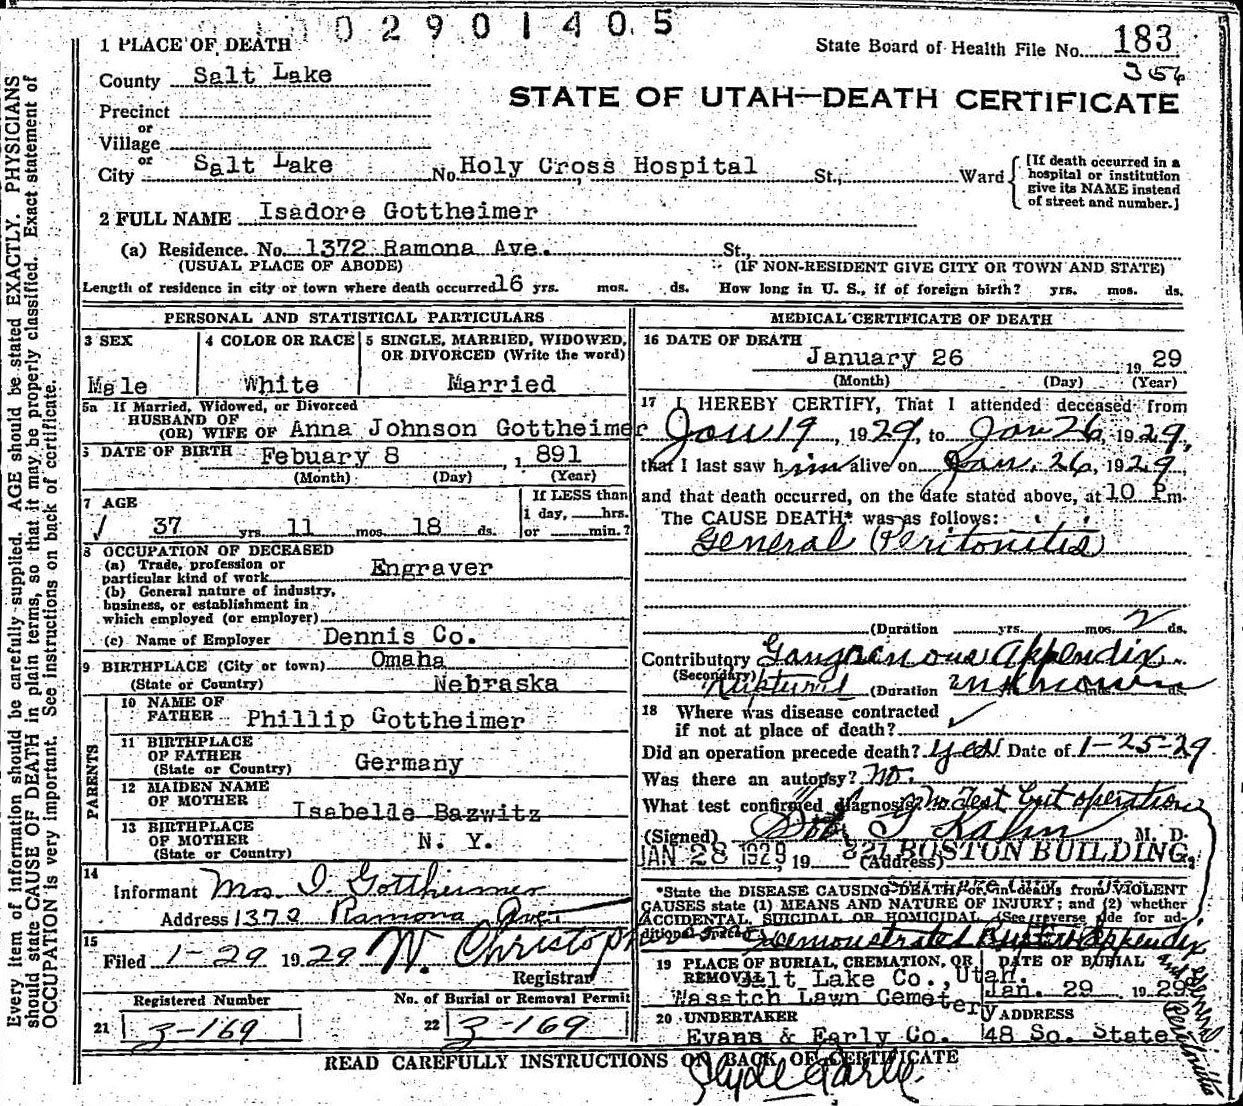 0 2 9 0 1 4 0 5
1 PLACE OF DEATH
State Board of Health File No. 183
356
County Salt Lake
STATE OF UTAH—DEATH CERTIFICATE
Precinct
or
Village
or
City Salt Lake No. Holy Cross Hospital St., Ward
[If death occurred in a hospital or institution give its NAME instead of street and number.]
2 FULL NAME Isadore Gottheimer
(a) Residence. No. 1372 Ramona Ave. St.,
(USUAL PLACE OF ABODE) (IF NON-RESIDENT GIVE CITY OR TOWN AND STATE)
Length of residence in city or town where death occurred 16 yrs. mos. ds. How long in U. S., if of foreign birth? yrs. mos. ds.
PERSONAL AND STATISTICAL PARTICULARS
3 SEX
Male
4 COLOR OR RACE
White
5 SINGLE, MARRIED, WIDOWED, OR DIVORCED (Write the word)
Married
5a If Married, Widowed, or Divorced
HUSBAND OF
(OR) WIFE OF Anna Johnson Gottheimer
6 DATE OF BIRTH Febuary 8, 1891
(Month) (Day) (Year)
7 AGE
37 yrs. 11 mos. 18 ds.
If LESS than
1 day, hrs.
or min.?
8 OCCUPATION OF DECEASED
(a) Trade, profession or
particular kind of work Engraver
(b) General nature of industry,
business, or establishment in
which employed (or employer)
(c) Name of Employer Dennis Co.
9 BIRTHPLACE (City or town) Omaha
(State or Country) Nebraska
PARENTS
10 NAME OF
FATHER Phillip Gottheimer
11 BIRTHPLACE
OF FATHER
(State or Country) Germany
12 MAIDEN NAME
OF MOTHER Isabelde Bazwitz
13 BIRTHPLACE
OF MOTHER N. Y.
(State or Country)
14
Informant Mrs I. Gottheimer
Address 1372 Ramona Ave
15
Filed 1-29 1929 W. Christoph
Registrar
Registered Number
21 3-169
No. of Burial or Removal Permit
22 3-169
MEDICAL CERTIFICATE OF DEATH
16 DATE OF DEATH
January 26 1929
(Month) (Day) (Year)
17 I HEREBY CERTIFY, That I attended deceased from
Jan 19, 1929, to Jan 26, 1929,
that I last saw him alive on Jan. 26, 1929
and that death occurred, on the date stated above, at 10 Pm.
The CAUSE DEATH* was as follows:
General Peritonitis
(Duration yrs. mos. 2 ds.
Contributory Gangrenous Appendix
(Secondary) Ruptured (Duration unknown ds.
18 Where was disease contracted
if not at place of death?
Did an operation precede death? yes Date of 1-25-29
Was there an autopsy? no.
What test confirmed diagnosis? no Test but operation
(Signed) Kahn M. D.
JAN 28 1929, 19 (Address) 821 BOSTON BUILDING
*State the DISEASE CAUSING DEATH, or, in deaths from VIOLENT
CAUSES state (1) MEANS AND NATURE OF INJURY; and (2) whether
ACCIDENTAL, SUICIDAL OR HOMICIDAL. (See reverse side for ad-
ditional space.)
Demonstrated Rupture Appendix
and General Peritonitis
19 PLACE OF BURIAL, CREMATION, OR
REMOVAL Salt Lake Co., Utah.
Wasatch Lawn Cemetery
DATE OF BURIAL
Jan. 29 1929
20 UNDERTAKER
Evans & Early Co.
ADDRESS
48 So. State
READ CAREFULLY INSTRUCTIONS ON BACK OF CERTIFICATE
Clyde Early.
Every item of information should be carefully supplied. AGE should be stated EXACTLY. PHYSICIANS
should state CAUSE OF DEATH in plain terms, so that it may be properly classified. Exact statement of
OCCUPATION is very important. See instructions on back of certificate.